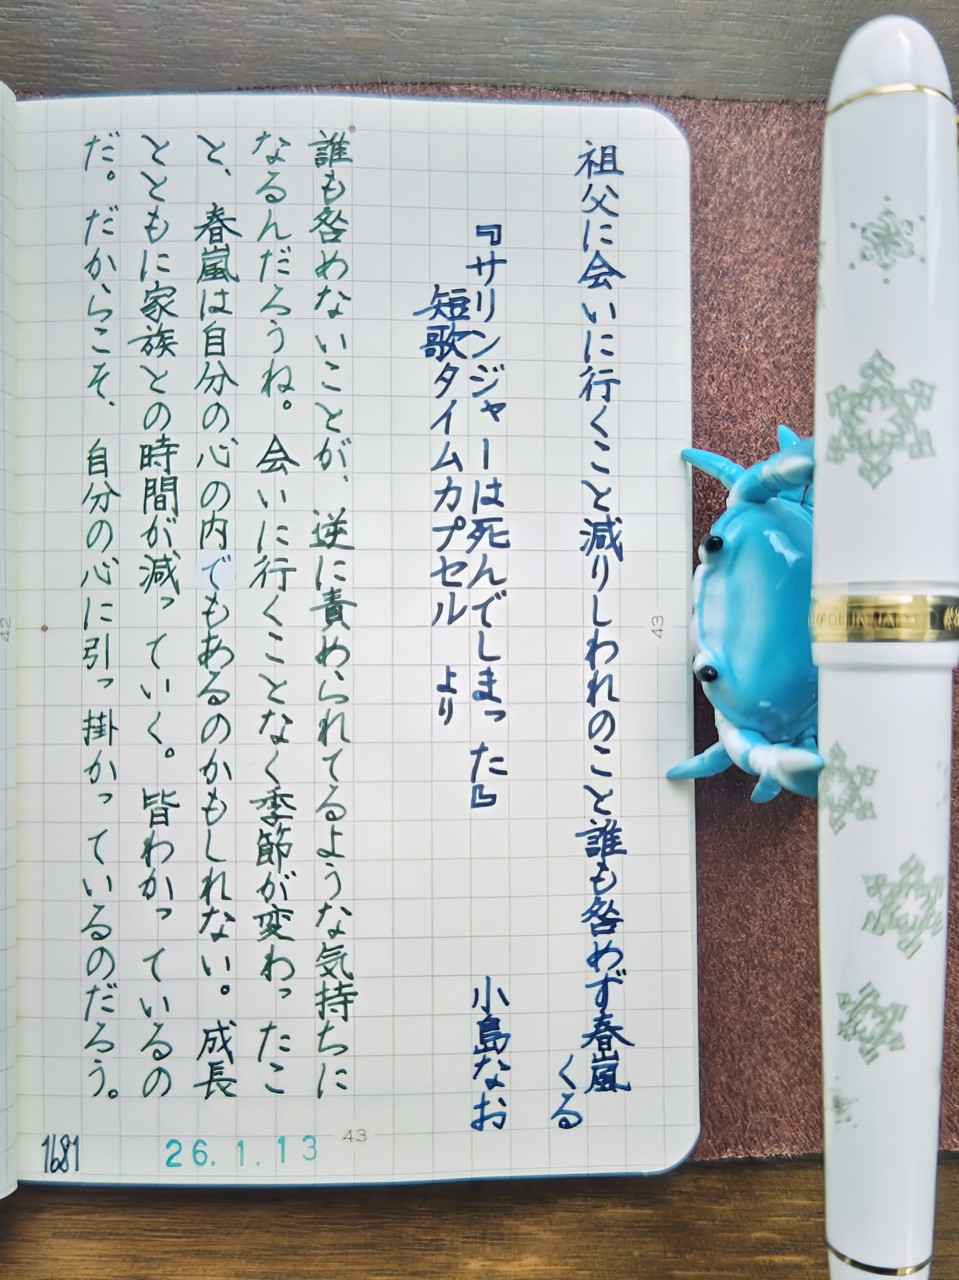 祖父に会いに行くこと減りしわれのこと誰も咎めず春嵐
くる
『サリンジャーは死んでしまった』
小島なお
短歌タイムカプセル より
誰も咎めないことが、逆に責められてるような気持ちに
なるんだろうね。会いに行くことなく季節が変わったこ
と、春嵐は自分の心の内でもあるのかもしれない。成長
とともに家族との時間が減っていく。皆わかっているの
だ。だからこそ、自分の心に引っ掛かっているのだろう。
1681
26.1.13
43
43
42
MADE IN JAPAN